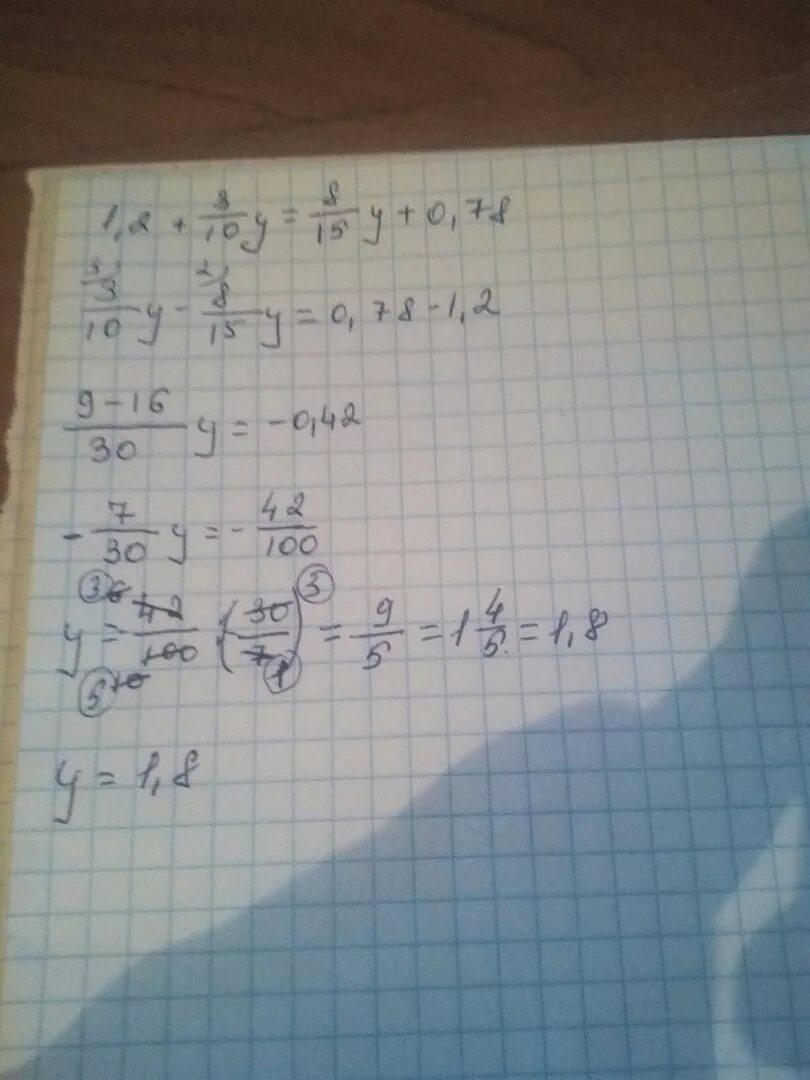 1,2 + 3/10 y = 8/15 y + 0,78
3/10 y - 8/15 y = 0,78 - 1,2
9-16/30 y = -0,42
- 7/30 y = - 42/100
y = 42/100 (30/7) = 9/5 = 1 4/5 = 1,8
y = 1,8